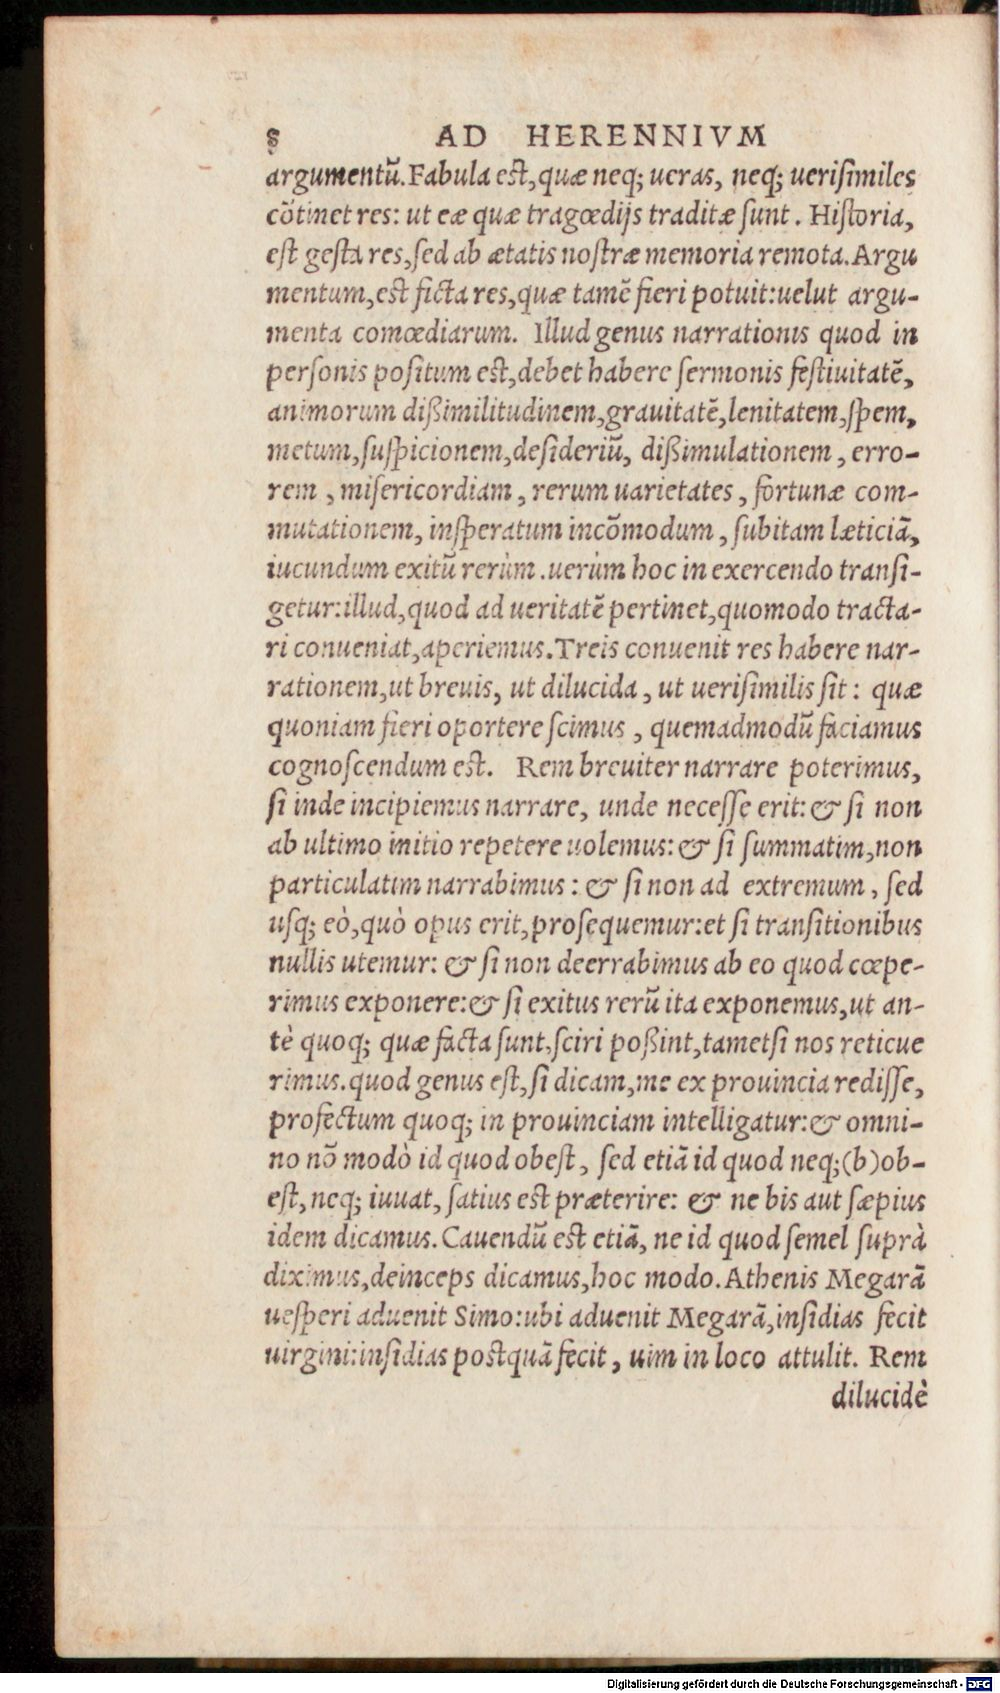 8 AD HERENNIVM
argumentũ. Fabula est, quæ neq; ueras, neq; uerisimiles
cõtinet res: ut eæ quæ tragœdijs traditæ sunt. Historia,
est gesta res, sed ab ætatis nostræ memoria remota. Argu
mentum, est ficta res, quæ tamẽ fieri potuit: uelut argu-
menta comœdiarum. Illud genus narrationis quod in
personis positum est, debet habere sermonis festiuitatẽ,
animorum dißimilitudinem, grauitatẽ, lenitatem, spem,
metum, suspicionem, desideriũ, dißimulationem, erro-
rem, misericordiam, rerum uarietates, fortunæ com-
mutationem, insperatum incõmodum, subitam læticiã,
iucundum exitũ rerùm. uerùm hoc in exercendo transi-
getur: illud, quod ad ueritatẽ pertinet, quomodo tracta-
ri conueniat, aperiemus. Treis conuenit res habere nar-
rationem, ut breuis, ut dilucida, ut uerisimilis sit: quæ
quoniam fieri oportere scimus, quemadmodũ faciamus
cognoscendum est. Rem breuiter narrare poterimus,
si inde incipiemus narrare, unde necesse erit: & si non
ab ultimo initio repetere uolemus: & si summatim, non
particulatim narrabimus: & si non ad extremum, sed
usq; eò, quò opus erit, prosequemur: et si transitionibus
nullis utemur: & si non deerrabimus ab eo quod cœpe-
rimus exponere: & si exitus rerũ ita exponemus, ut an-
tè quoq; quæ facta sunt, sciri poßint, tametsi nos reticue
rimus. quod genus est, si dicam, me ex prouincia redisse,
profectum quoq; in prouinciam intelligatur: & omni-
no nõ modò id quod obest, sed etiã id quod neq; (b) ob-
est, neq; iuuat, satius est præterire: & ne bis aut sæpius
idem dicamus. Cauendũ est etiã, ne id quod semel suprà
diximus, deinceps dicamus, hoc modo. Athenis Megarã
uesperi aduenit Simo: ubi aduenit Megarã, insidias fecit
uirgini: insidias postquã fecit, uim in loco attulit. Rem
dilucidè
Digitalisierung gefördert durch die Deutsche Forschungsgemeinschaft - DFG